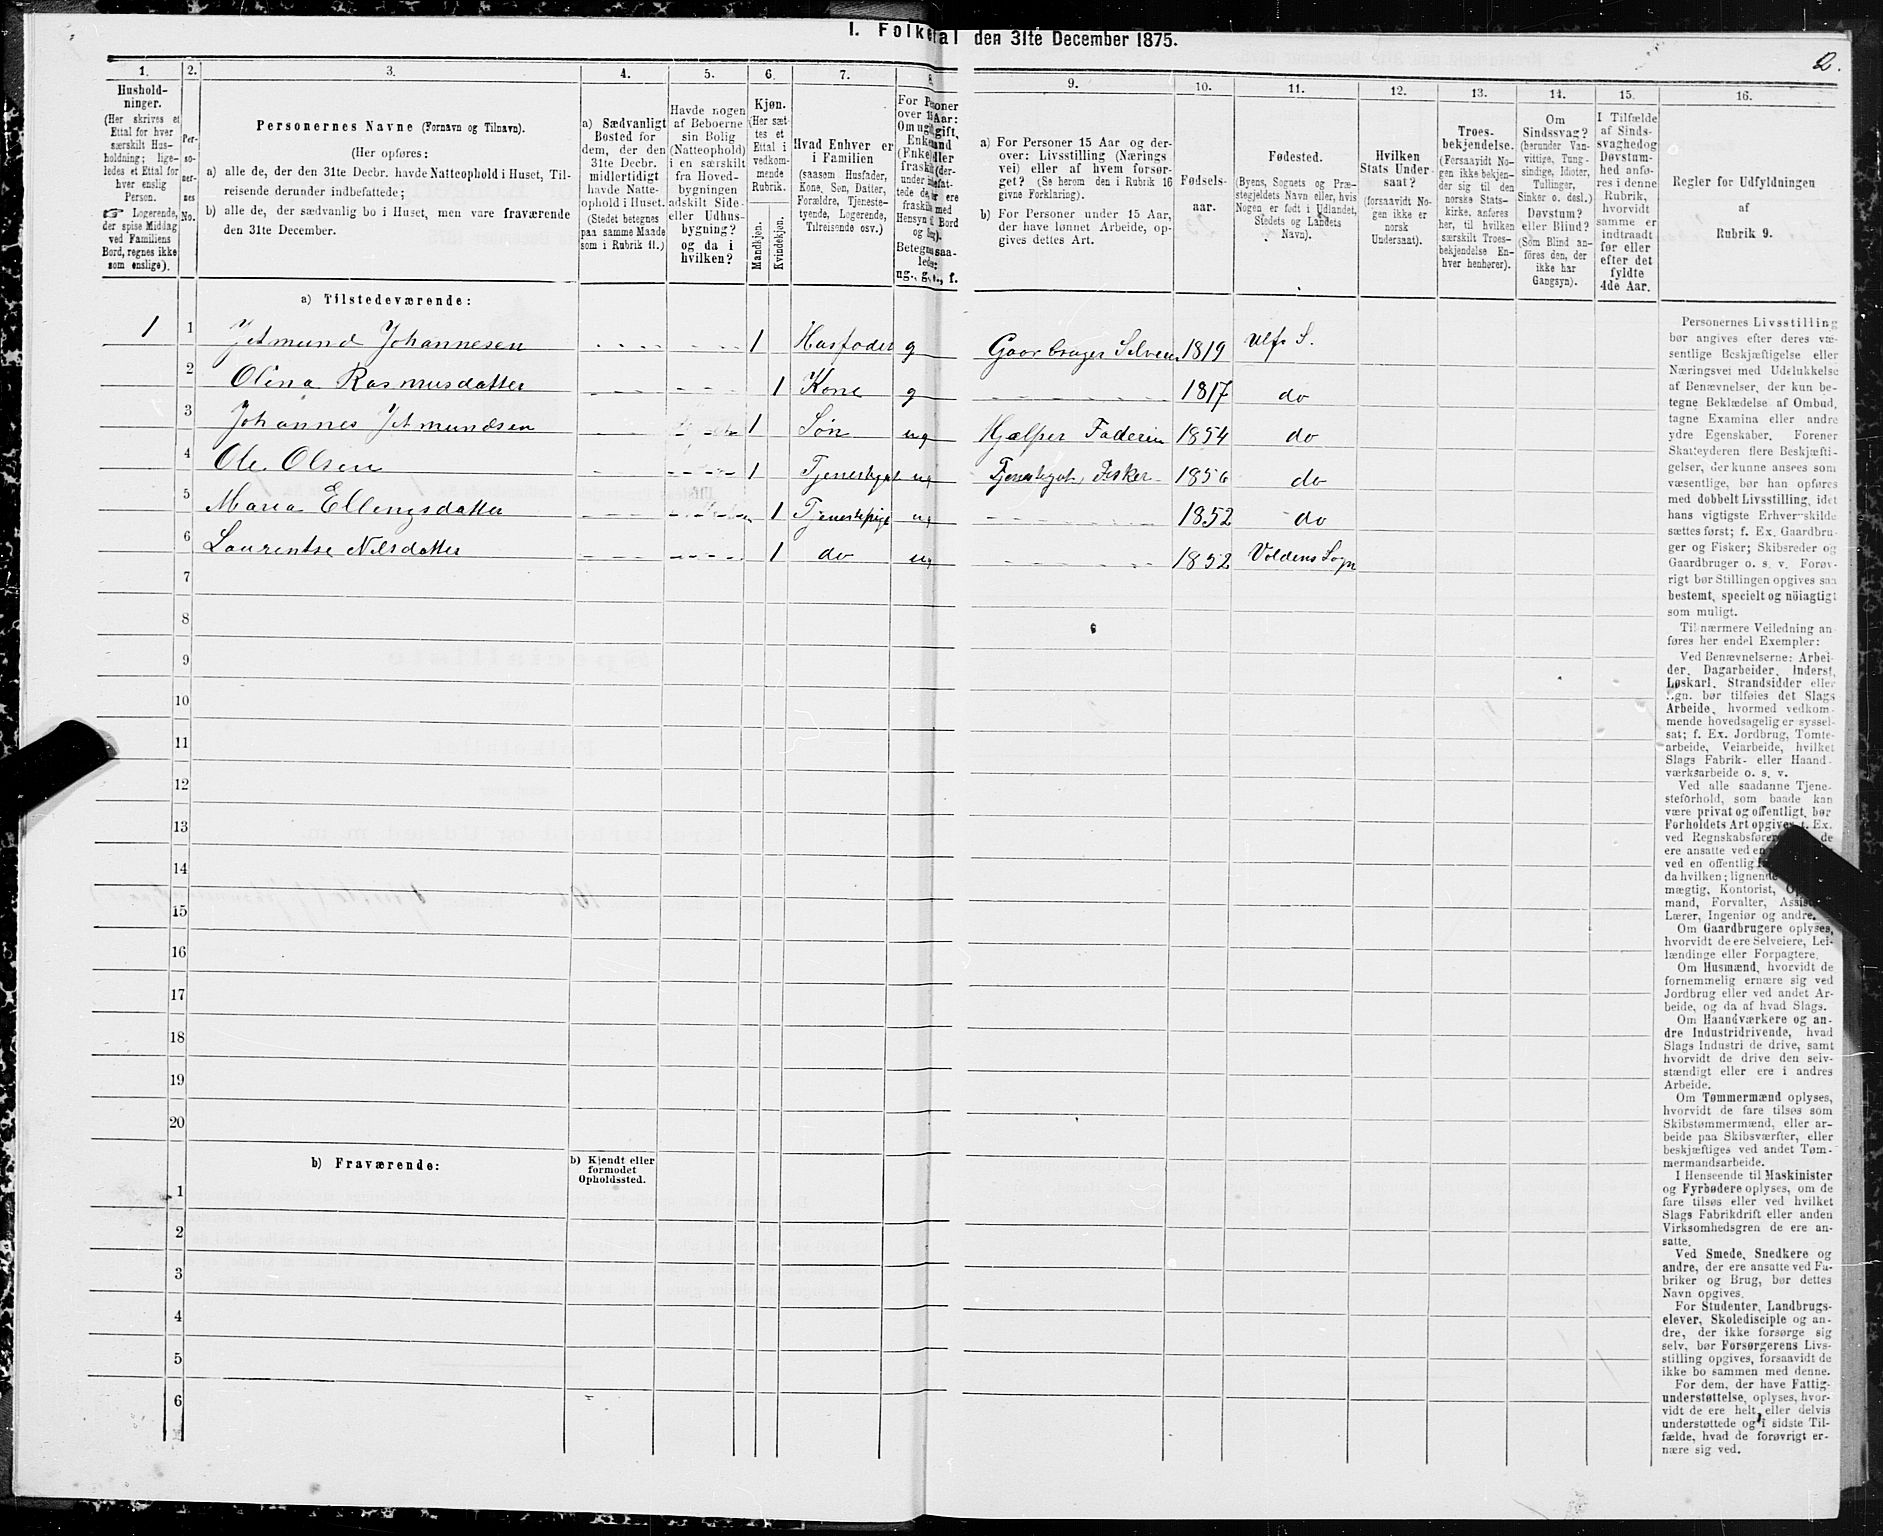 I. Folketal den 31te December 1875.
2.
1. 2. 3. 4. 5. 6. 7. 8. 9. 10. 11. 12. 13. 14. 15. 16.
Hushold-
ninger.
(Her skrives et
Ettal for hver
særskilt Hus-
holdning; lige-
ledes et Ettal for
hver enslig
Person.
☞ Logerende,
der spise Middag
ved Familiens
Bord, regnes ikke
som enslige).
Per-
so-
ner-
nes
No.
Personernes Navne (Fornavn og Tilnavn).
(Her opføres:
a) alle de, der den 31te Decbr. havde Natteophold i Huset, Til-
reisende derunder indbefattede;
b) alle de, der sædvanlig bo i Huset, men vare fraværende
den 31te December.
a) Sædvanligt
Bosted for
dem, der den
31te Decbr.
midlertidigt
havde Natte-
ophold i Huset.
(Stedet betegnes
paa samme Maade
som i Rubrik 11.)
Havde nogen
af Beboerne
sin Bolig
(Natteophold)
i en særskilt
fra Hoved-
bygningen
adskilt Side-
eller Udhus-
bygning?
og da i
hvilken?
Kjøn.
(Her sæt-
tes et
Ettal i
vedkom-
mende
Rubrik.
Mandkjøn.
Kvindekjøn.
Hvad Enhver er
i Familien
(saasom Husfader,
Kone, Søn, Datter,
Forældre, Tjeneste-
tyende, Logerende,
Tilreisende osv.)
For Personer
over 15 Aar:
Om ugift,
ug., g., e., f.
a) For Personer 15 Aar og der-
over: Livsstilling (Nærings
vei) eller af hvem forsør-
get? (Se herom den i Rubrik 16
givne Forklaring).
b) For Personer under 15 Aar,
der have lønnet Arbeide, op-
gives dettes Art.
Fødsels-
aar.
Fødested.
(Byens, Sognets og Præ-
stegjeldets Navn eller, hvis
Nogen er født i Udlandet,
Stedets og Landets
Navn).
Hvilken
Stats Under
saat?
(forsaavidt No-
gen ikke er
norsk
Undersaat).
Troes-
bekjendelse.
(Forsaavidt No-
gen ikke bekjen-
der sig til den
norske Stats-
kirke, anføres
her, til hvilken
særskilt Troes-
bekjendelse En-
hver henhører).
Om
Sindssvag?
(herunder Van-
vittige, Tung-
sindige, Idioter,
Tullinger,
Sinker o. desl.)
Døvstum?
eller Blind?
(Som Blind an-
føres den, der
ikke har
Gangsyn).
I Tilfælde
af Sinds-
svaghed og
Døvstum-
hed anfø-
res i denne
Rubrik,
hvorvidt
samme er
indtraadt
før eller
efter det
fyldte
4de Aar.
Regler for Udfyldningen
af
Rubrik 9.
a) Tilstedeværende:
1 1 Jetmund Johannesen 1 Husfader g Gaardbruger Selveier 1819 Ulfs S.
2 Olina Rasmusdatter 1 Kone g 1817 do
3 Johannes Jetmundsen 1 Søn ug Hjælper Faderen 1854 do
4 Ole Olsen 1 Tjenestegut ug Tjenestegut, Fisker 1856 do
5 Maria Ellingsdatter 1 Tjenestepige ug 1852 do
6 Laurentse Nilsdatter 1 do ug 1852 Voldens Sogn
7
8
9
10
11
12
13
14
15
16
17
18
19
20
b) Fraværende:
b) Kjendt eller
formodet
Opholdssted.
1
2
3
4
5
6
Personernes Livsstilling
bør angives efter deres væ-
sentlige Beskjæftigelse eller
Næringsvei med Udelukkelse
af Benævnelser, der kun be-
tegne Beklædelse af Ombud,
tagne Examina eller andre
ydre Egenskaber. Forener
Skatteyderen flere Beskjæfti-
gelser, der kunne ansees som
væsentlige, bør han opføres
med dobbelt Livsstilling, idet
hans vigtigste Erhverskilde
sættes først; f. Ex. Gaardbru-
ger og Fisker; Skibsreder og
Gaardbruger o. s. v. Forøv-
rigt bør Stillingen opgives saa
bestemt, specielt og nöiagtigt
som muligt.
Til nærmere Veiledning an-
føres her endel Exempler:
Ved Benævnelserne: Arbei-
der, Dagarbeider, Inderst,
Løskarl, Strandsidder eller
lign. bør tilføies det Slags
Arbeide, hvormed vedkom-
mende hovedsagelig er syssel-
sat; f. Ex. Jordbrug, Tomte-
arbeide, Veiarbeide, hvilket
Slags Fabrik- eller Haand-
værksarbeide o. s. v.
Ved alle saadanne Tjene-
steforhold, som baade kan
være privat og offentligt, bør
Forholdets Art opgives, f. Ex.
ved Regnskabsfører
ere ansatte ved en
ved en offentlig
da hvilken; lignende
mægtig, Kontorist,
mand, Forvalter,
Lærer, Ingeniør og andre.
Om Gaardbrugere oplyses,
hvorvidt de ere Selveiere, Lei-
lændinge eller Forpagtere.
Om Husmænd, hvorvidt de
fornemmelig ernære sig ved
Jordbrug eller ved andet Ar-
beide, og da af hvad Slags.
Om Haandværkere og an-
dre Industridrivende, hvad
Slags Industri de drive, samt
hvorvidt de drive den selv-
stændigt eller ere i andres
Arbeide.
Om Tømmermænd oplyses,
hvorvidt de fare tilsøs som
Skibstømmermænd, eller ar-
beide paa Skibsværfter, eller
beskjæftiges ved andet Tøm-
mermandsarbeide.
I Henseende til Maskinister
og Fyrbødere oplyses, om de
fare tilsøs eller ved hvilket
Slags Fabrikdrift eller anden
Virksomhedsgren de ere an-
satte.
Ved Smede, Snedkere og
andre, der ere ansatte ved Fa-
briker og Brug, bør dettes
Navn opgives.
For Studenter, Landbrugs-
elever, Skoledisciple og an-
dre, der ikke forsørge sig
selv, bør Forsørgerens Livs-
stilling opgives, forsaavidt de
ikke bo sammen med denne.
For dem, der have Fattig-
understøttelse, oplyses, hvor-
vidt de ere helt eller delvis
understøttede og i sidste Til-
fælde, hvad de forøvrigt er-
nære sig ved.